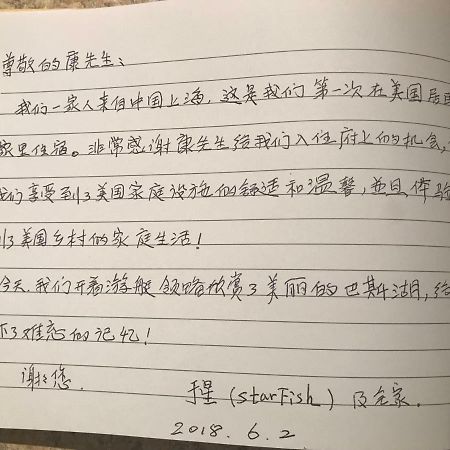 尊敬的康先生：
我们一家人来自中国上海，这是我们第一次在美国居
家里住宿。非常感谢康先生给我们入住府上的机会，
我们享受到了美国家庭设施的舒适和温馨，并且体验
到了美国乡村的家庭生活！
今天，我们开着游艇领略欣赏了美丽的巴斯湖，给
下了难忘的记忆！
谢谢您．
星 (starFish) 及全家．
2018．6．2